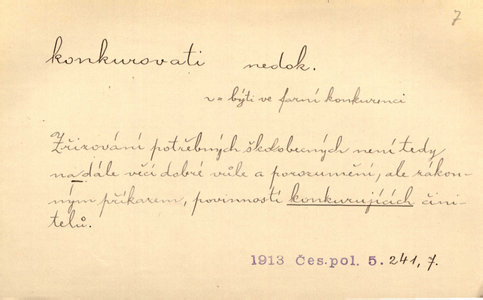 7
konkurovati nedok.
v = býti ve farní konkurenci
Zřizování potřebných škdobecných není tedy
na dále věcí dobré vůle a porozumění, ale zákon-
ným příkazem, povinností konkurujících čini-
telů.
1913 Čes. pol. 5. 241, 7.